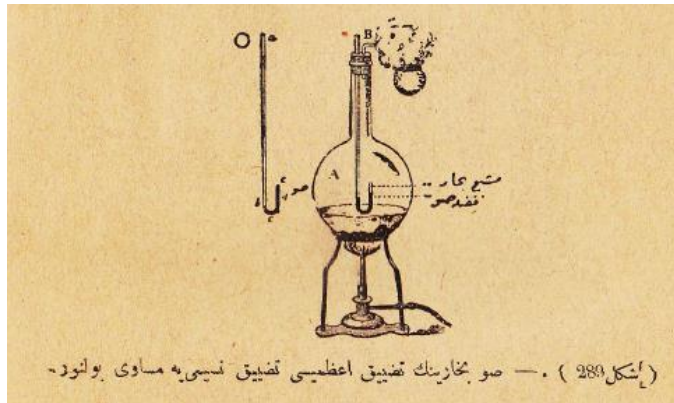 B
A
صو
مشبع بخار
صو
(شكل 289) . — صو بخارينك تضييق اعظميسى تضييق نسيمى يه مساوى بولنور.